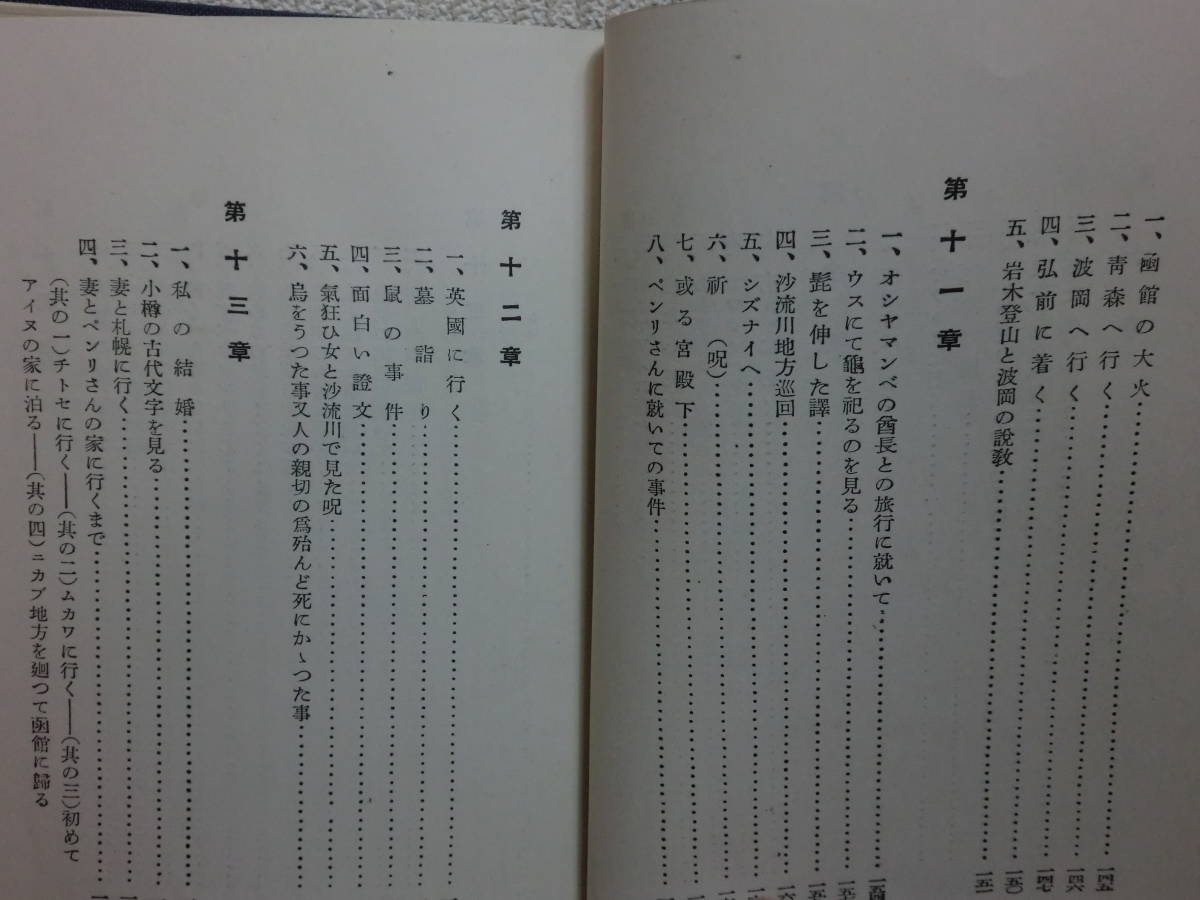 一、函館の大火……一四五
二、靑森へ行く……一四六
三、波岡へ行く……一四七
四、弘前に着く……一五〇
五、岩木登山と波岡の說敎……一五一
第十一章
一、オシヤマンベの酋長との旅行に就いて……一五四
二、ウスにて龜を祀るのを見る
三、髭を伸した譯
四、沙流川地方巡回
五、シズナイへ
六、祈（呪）
七、或る宮殿下
八、ペンリさんに就いての事件
第十二章
一、英國に行く
二、墓詣り
三、鼠の事件
四、面白い證文
五、氣狂ひ女と沙流川で見た呪
六、烏をうつた事又人の親切の爲殆んど死にかゝつた事
第十三章
一、私の結婚
二、小樽の古代文字を見る
三、妻と札幌に行く
四、妻とペンリさんの家に行くまで
（其の一）チトセに行く――（其の二）ムカワに行く――（其の三）初めて
アイヌの家に泊る――（其の四）ニカブ地方を廻つて函館に歸る